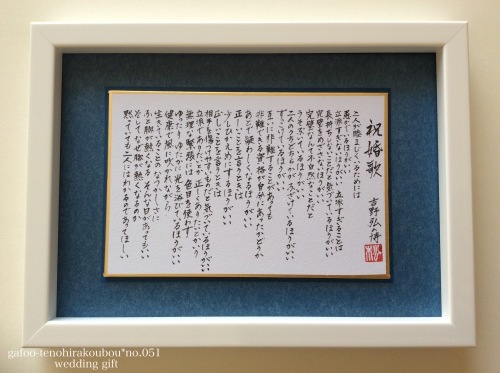 祝婚歌
吉野弘
二人が睦まじくいるためには
愚かでいるほうがいい
立派すぎないほうがいい 立派すぎることは
長持ちしないことだと気づいているほうがいい
完璧をめざさないほうがいい
完璧なんて不自然なことだと
うそぶいているほうがいい
二人のうちどちらかがふざけているほうがいい
ずっこけているほうがいい
互いに非難することがあっても
非難できる資格が自分にあったかどうか
あとで疑わしくなるほうがいい
正しいことを言うときは
少しひかえめにするほうがいい
正しいことを言うときは
相手を傷つけやすいものだと気づいているほうがいい
立派でありたいとか正しくありたいとかいう
無理な緊張には 色目を使わず
ゆったり ゆたかに 光を浴びているほうがいい
健康で 風に吹かれながら
生きていることのなつかしさに
ふと胸が熱くなる そんな日があってもいい
そして なぜ胸が熱くなるのか
黙っていても 二人にはわかるのであってほしい
gafoo-tenohirakoubou*no.051
wedding gift